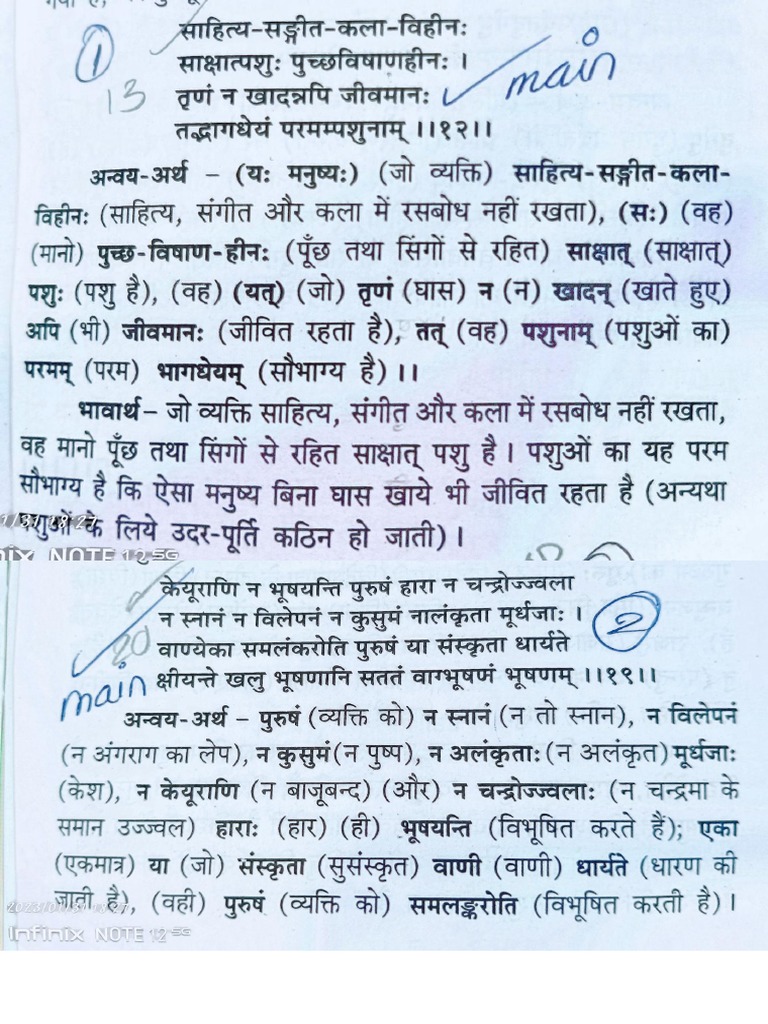 साहित्य-सङ्गीत-कला-विहीनः
1
साक्षात्पशुः पुच्छविषाणहीनः ।
main
13
तृणं न खादन्नपि जीवमानः
तद्भागधेयं परमम्पशुनाम् ।।१२।।
अन्वय-अर्थ – (यः मनुष्यः) (जो व्यक्ति) साहित्य-सङ्गीत-कला-
विहीनः (साहित्य, संगीत और कला में रसबोध नहीं रखता), (सः) (वह)
(मानो) पुच्छ-विषाण-हीनः (पूँछ तथा सिंगों से रहित) साक्षात् (साक्षात्)
पशुः (पशु है), (वह) (यत्) (जो) तृणं (घास) न (न) खादन् (खाते हुए)
अपि (भी) जीवमानः (जीवित रहता है), तत् (वह) पशुनाम् (पशुओं का)
परमम् (परम) भागधेयम् (सौभाग्य है) ।।
भावार्थ – जो व्यक्ति साहित्य, संगीत और कला में रसबोध नहीं रखता,
वह मानो पूँछ तथा सिंगों से रहित साक्षात् पशु है । पशुओं का यह परम
सौभाग्य है कि ऐसा मनुष्य बिना घास खाये भी जीवित रहता है (अन्यथा
पशुओं के लिये उदर-पूर्ति कठिन हो जाती) ।
NOTE 12 5G
केयूराणि न भूषयन्ति पुरुषं हारा न चन्द्रोज्ज्वला
न स्नानं न विलेपनं न कुसुमं नालंकृता मूर्धजाः ।
2
20
वाण्येका समलंकरोति पुरुषं या संस्कृता धार्यते
main
क्षीयन्ते खलु भूषणानि सततं वाग्भूषणं भूषणम् ।।१९।।
अन्वय-अर्थ – पुरुषं (व्यक्ति को) न स्नानं (न तो स्नान), न विलेपनं
(न अंगराग का लेप), न कुसुमं (न पुष्प), न अलंकृताः (न अलंकृत) मूर्धजाः
(केश), न केयूराणि (न बाजूबन्द) (और) न चन्द्रोज्ज्वलाः (न चन्द्रमा के
समान उज्ज्वल) हाराः (हार) (ही) भूषयन्ति (विभूषित करते हैं); एका
(एकमात्र) या (जो) संस्कृता (सुसंस्कृत) वाणी (वाणी) धार्यते (धारण की
जाती है), (वही) पुरुषं (व्यक्ति को) समलङ्करोति (विभूषित करती है) ।
Infinix NOTE 12 5G